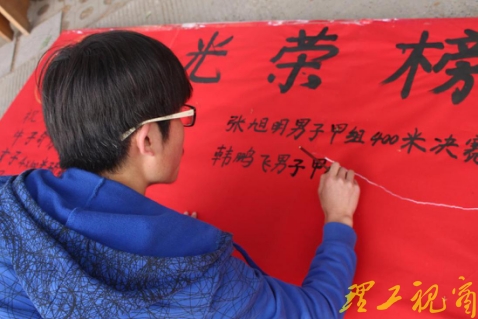 光荣榜
张旭明男子甲组400米决赛
韩鹏飞男子甲
理工视商